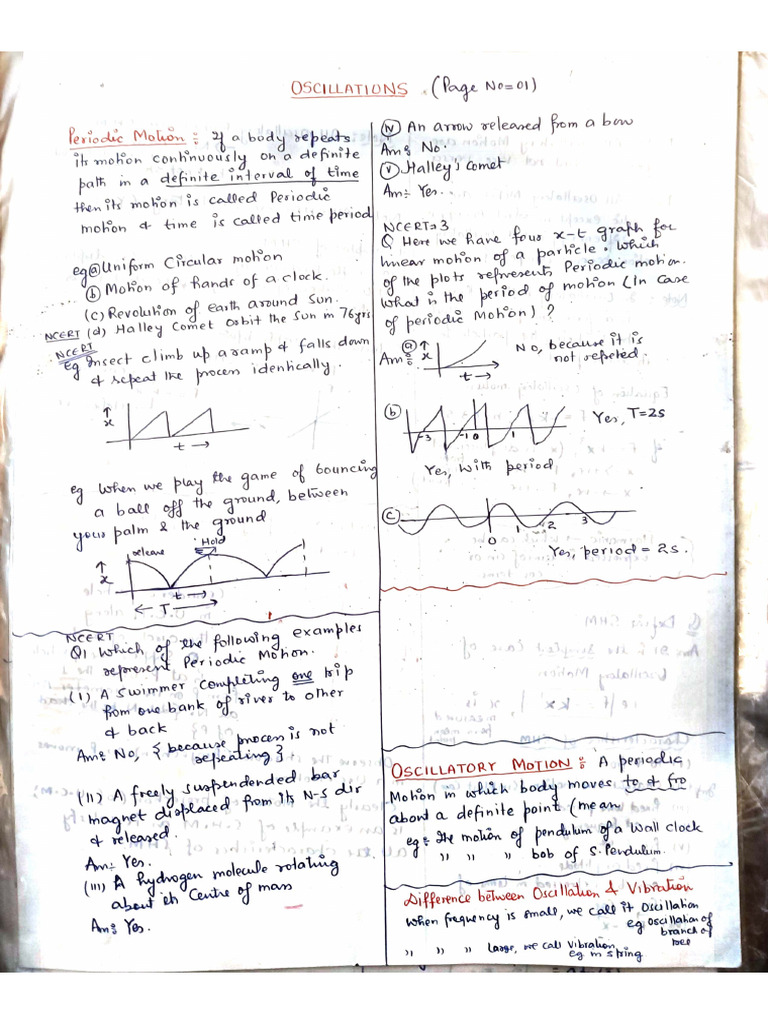 OSCILLATIONS (Page No=01)
Periodic Motion :- If a body repeats
its motion continuously on a definite
path in a definite interval of time
then its motion is called Periodic
motion & time is called time period
eg (a) Uniform Circular motion
(b) Motion of hands of a clock.
(c) Revolution of earth around Sun.
NCERT (d) Halley Comet orbit the Sun in 76yrs
NCERT
Eg Insect climb up a ramp & falls down
& repeat the process identically.
x
t →
eg When we play the game of bouncing
a ball off the ground, between
your palm & the ground
release
Hold
x
t →
← T →
NCERT
Q1 Which of the following examples
represent Periodic Motion.
(I) A swimmer completing one trip
from one bank of river to other
& back
Ans: No, { because process is not
repeating }
(II) A freely suspendended bar
magnet displaced from its N-S dir
& released.
Am:- Yes.
(III) A hydrogen molecule rotating
about its Centre of mass
Am: Yes.
(IV) An arrow released from a bow
Am: No.
(V) Halley's comet
Am:- Yes.
NCERT=3
Q Here we have four x-t graph for
linear motion of a particle. Which
of the plots represents Periodic motion.
What is the period of motion (In case
of periodic Motion) ?
Am: (a) x
No, because it is
not repeted.
t →
(b)
-3 -1 0 1
Yes, T=2s
Yes, with period
(c)
0 1 2 3
Yes, period = 2s.
OSCILLATORY MOTION :- A periodic
Motion in which body moves to & fro
about a definite point (mean
eg:- the motion of pendulum of a Wall clock
" " " bob of S. Pendulum.
Difference between Oscillation & Vibration
When frequency is small, we call it Oscillation
eg. oscillation of
branch of
tree
" " " Large, we call Vibration
eg m string